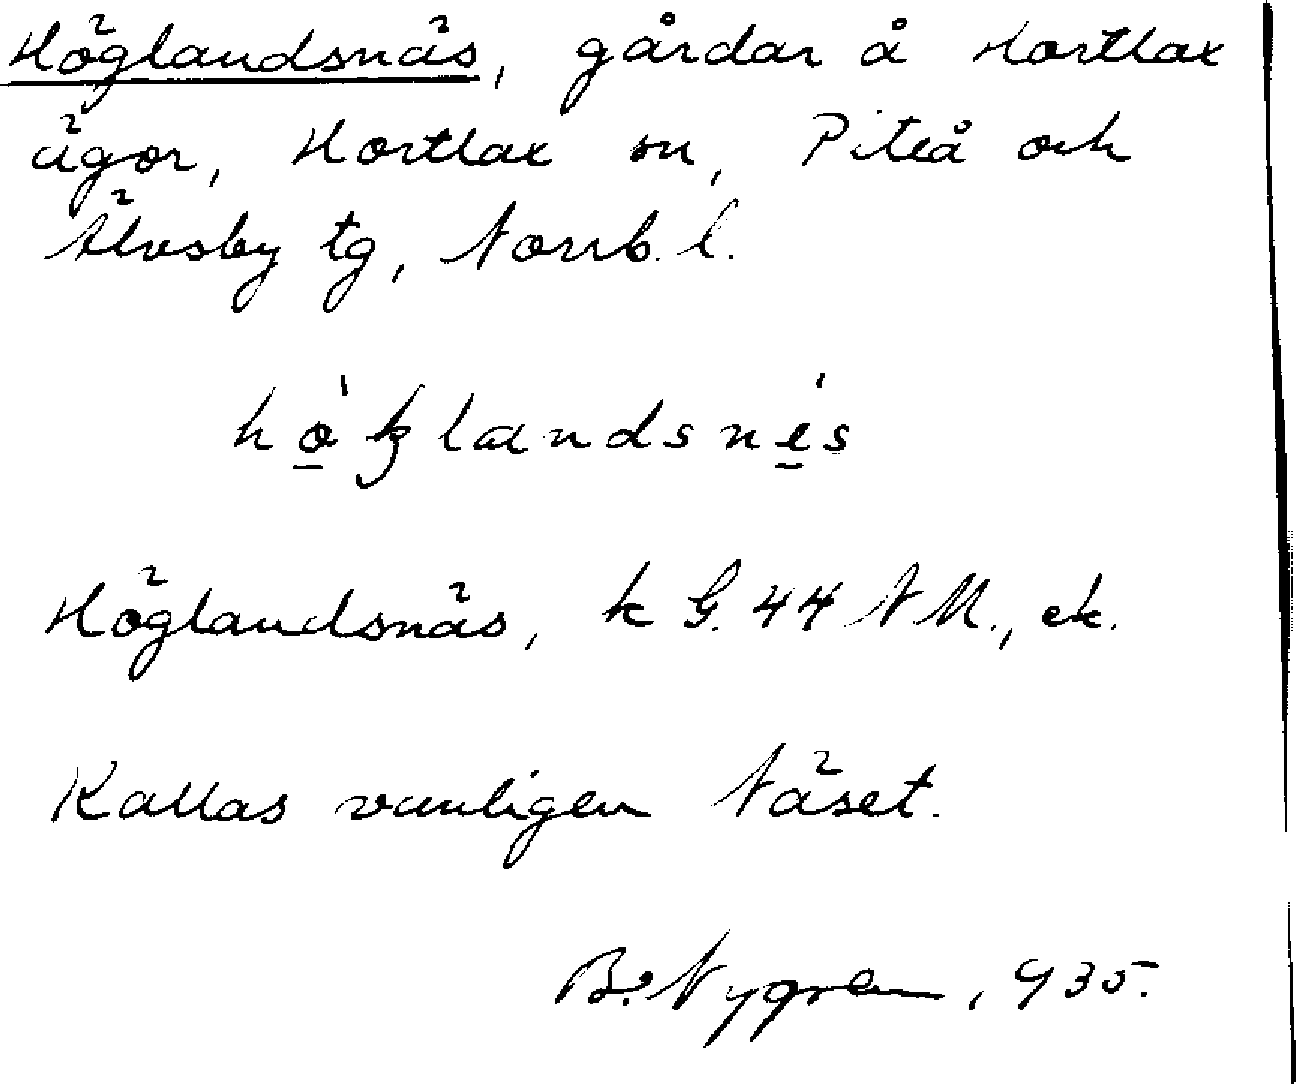 Höglandsnäs, gårdar å Hortlax
ägor, Hortlax sn, Piteå och
Älvsby tg, Norrb. l.
Höglandsnäs, k G. 44 NM., ek.
Kallas vanligen Näset.
B. Nygren, 935.